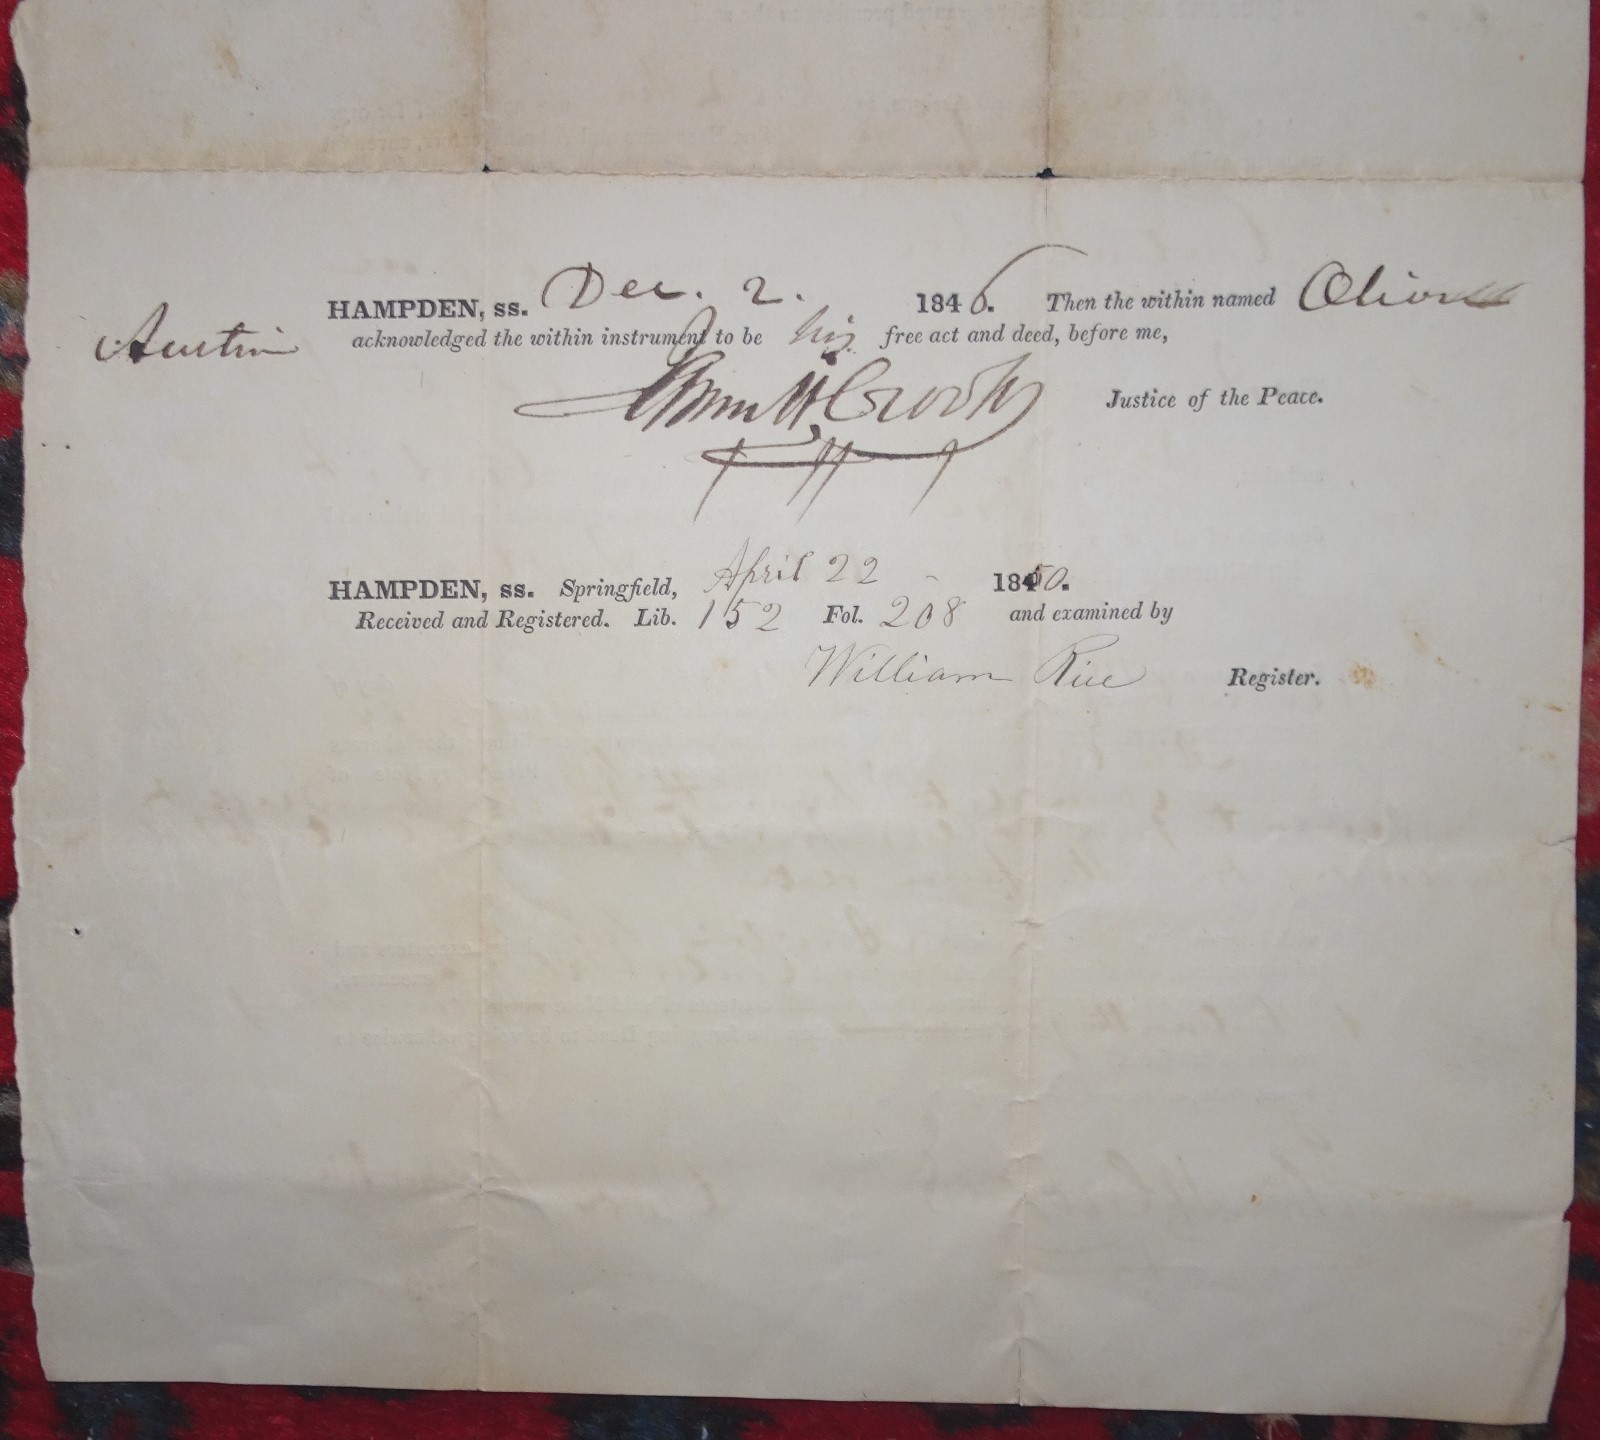 HAMPDEN, ss. Dec. 2. 1846. Then the within named Oliver
Austin acknowledged the within instrument to be his free act and deed, before me,
Justice of the Peace.
HAMPDEN, ss. Springfield, April 22 - 1850.
Received and Registered. Lib. 152 Fol. 208 and examined by
William Rice Register.